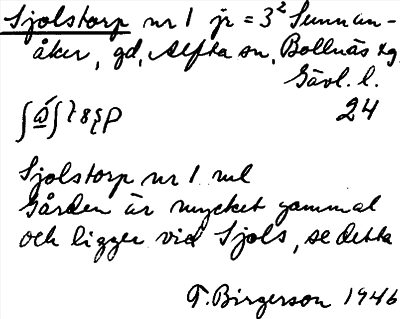 Sjolstorp nr 1 jr = 3² Sunnan-
åker, gd, Alfta sn, Bollnäs tg
Gävl. l.
24
Sjolstorp nr 1 ml
Gården är mycket gammal
och ligger vid Sjols, se detta
T. Birgerson 1946